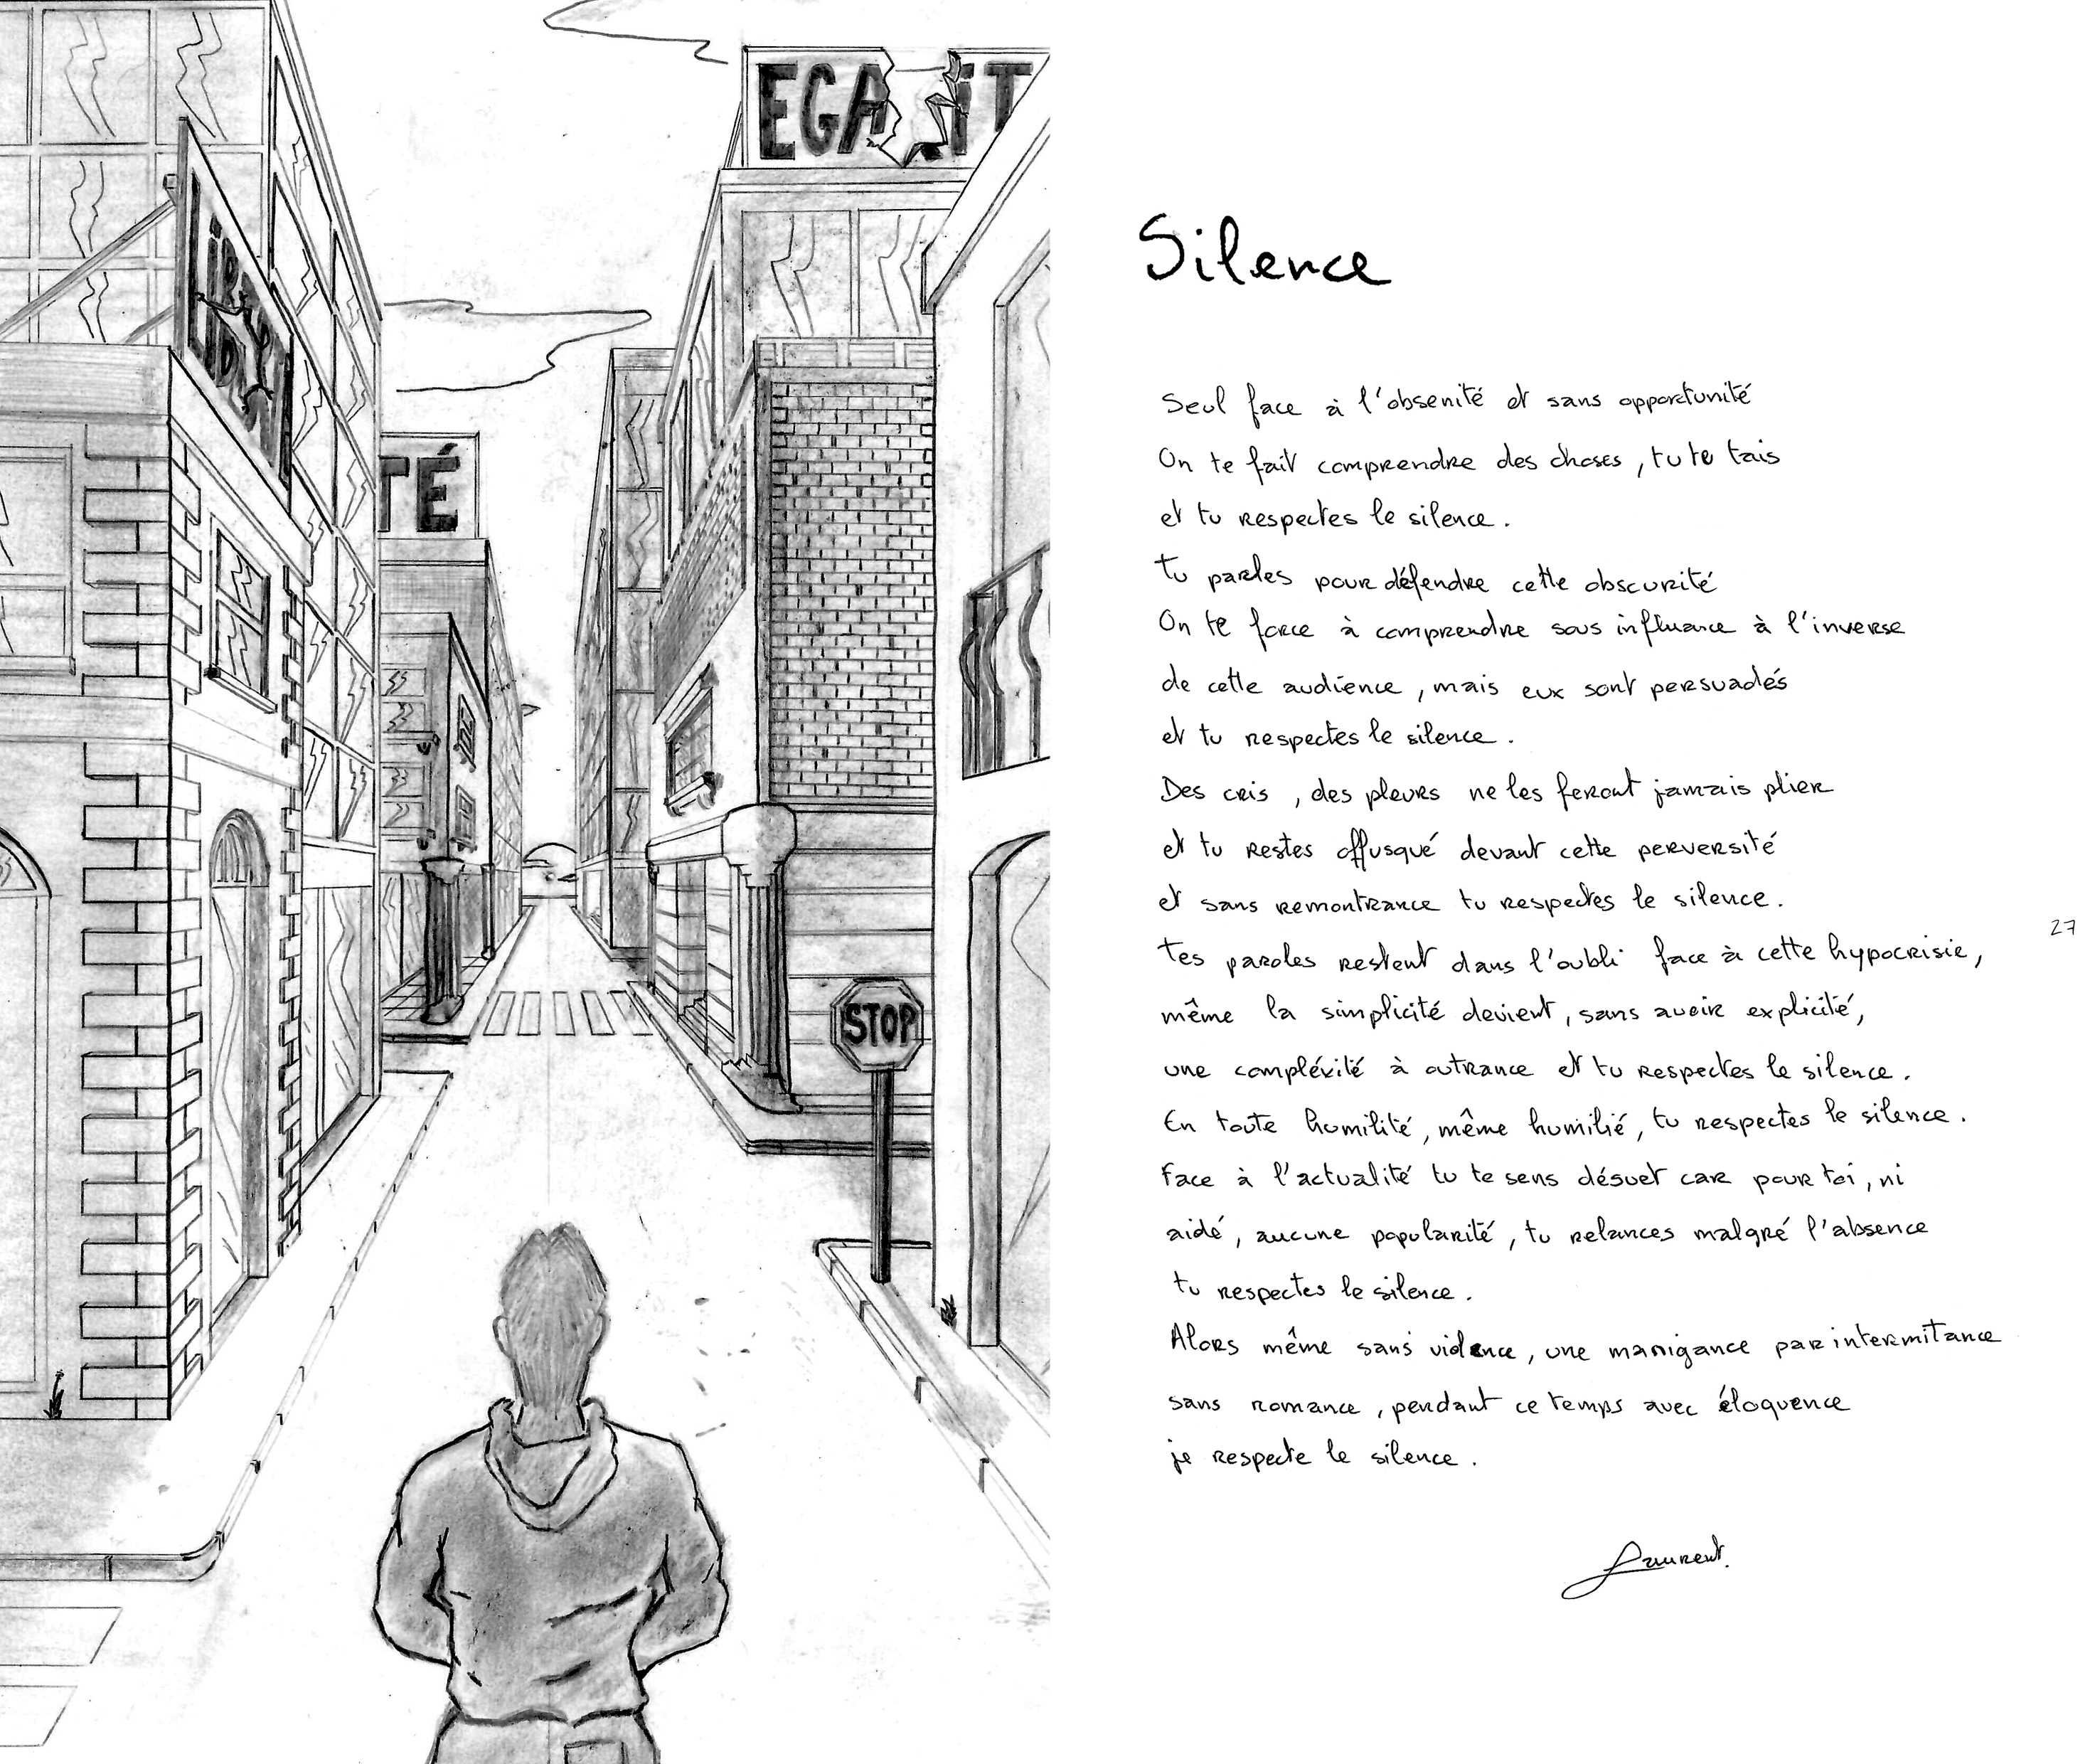 EGA IT
TÉ
STOP
Silence
Seul face à l'obsenité et sans opportunité
On te fait comprendre des choses, tu te tais
et tu respectes le silence.
tu parles pour défendre cette obscurité
On te force à comprendre sous influance à l'inverse
de cette audience, mais eux sont persuadés
et tu respectes le silence.
Des cris, des pleurs ne les feront jamais plier
et tu restes offusqué devant cette perversité
et sans remontrance tu respectes le silence.
tes paroles restent dans l'oubli face à cette hypocrisie,
27
même la simplicité devient, sans avoir explicité,
une compléxité à outrance et tu respectes le silence.
En toute humilité, même humilié, tu respectes le silence.
Face à l'actualité tu te sens désuet car pour toi, ni
aidé, aucune popularité, tu relances malgré l'absence
tu respectes le silence.
Alors même sans violence, une manigance par intermitance
sans romance, pendant ce temps avec éloquence
je respecte le silence.
Laurent.